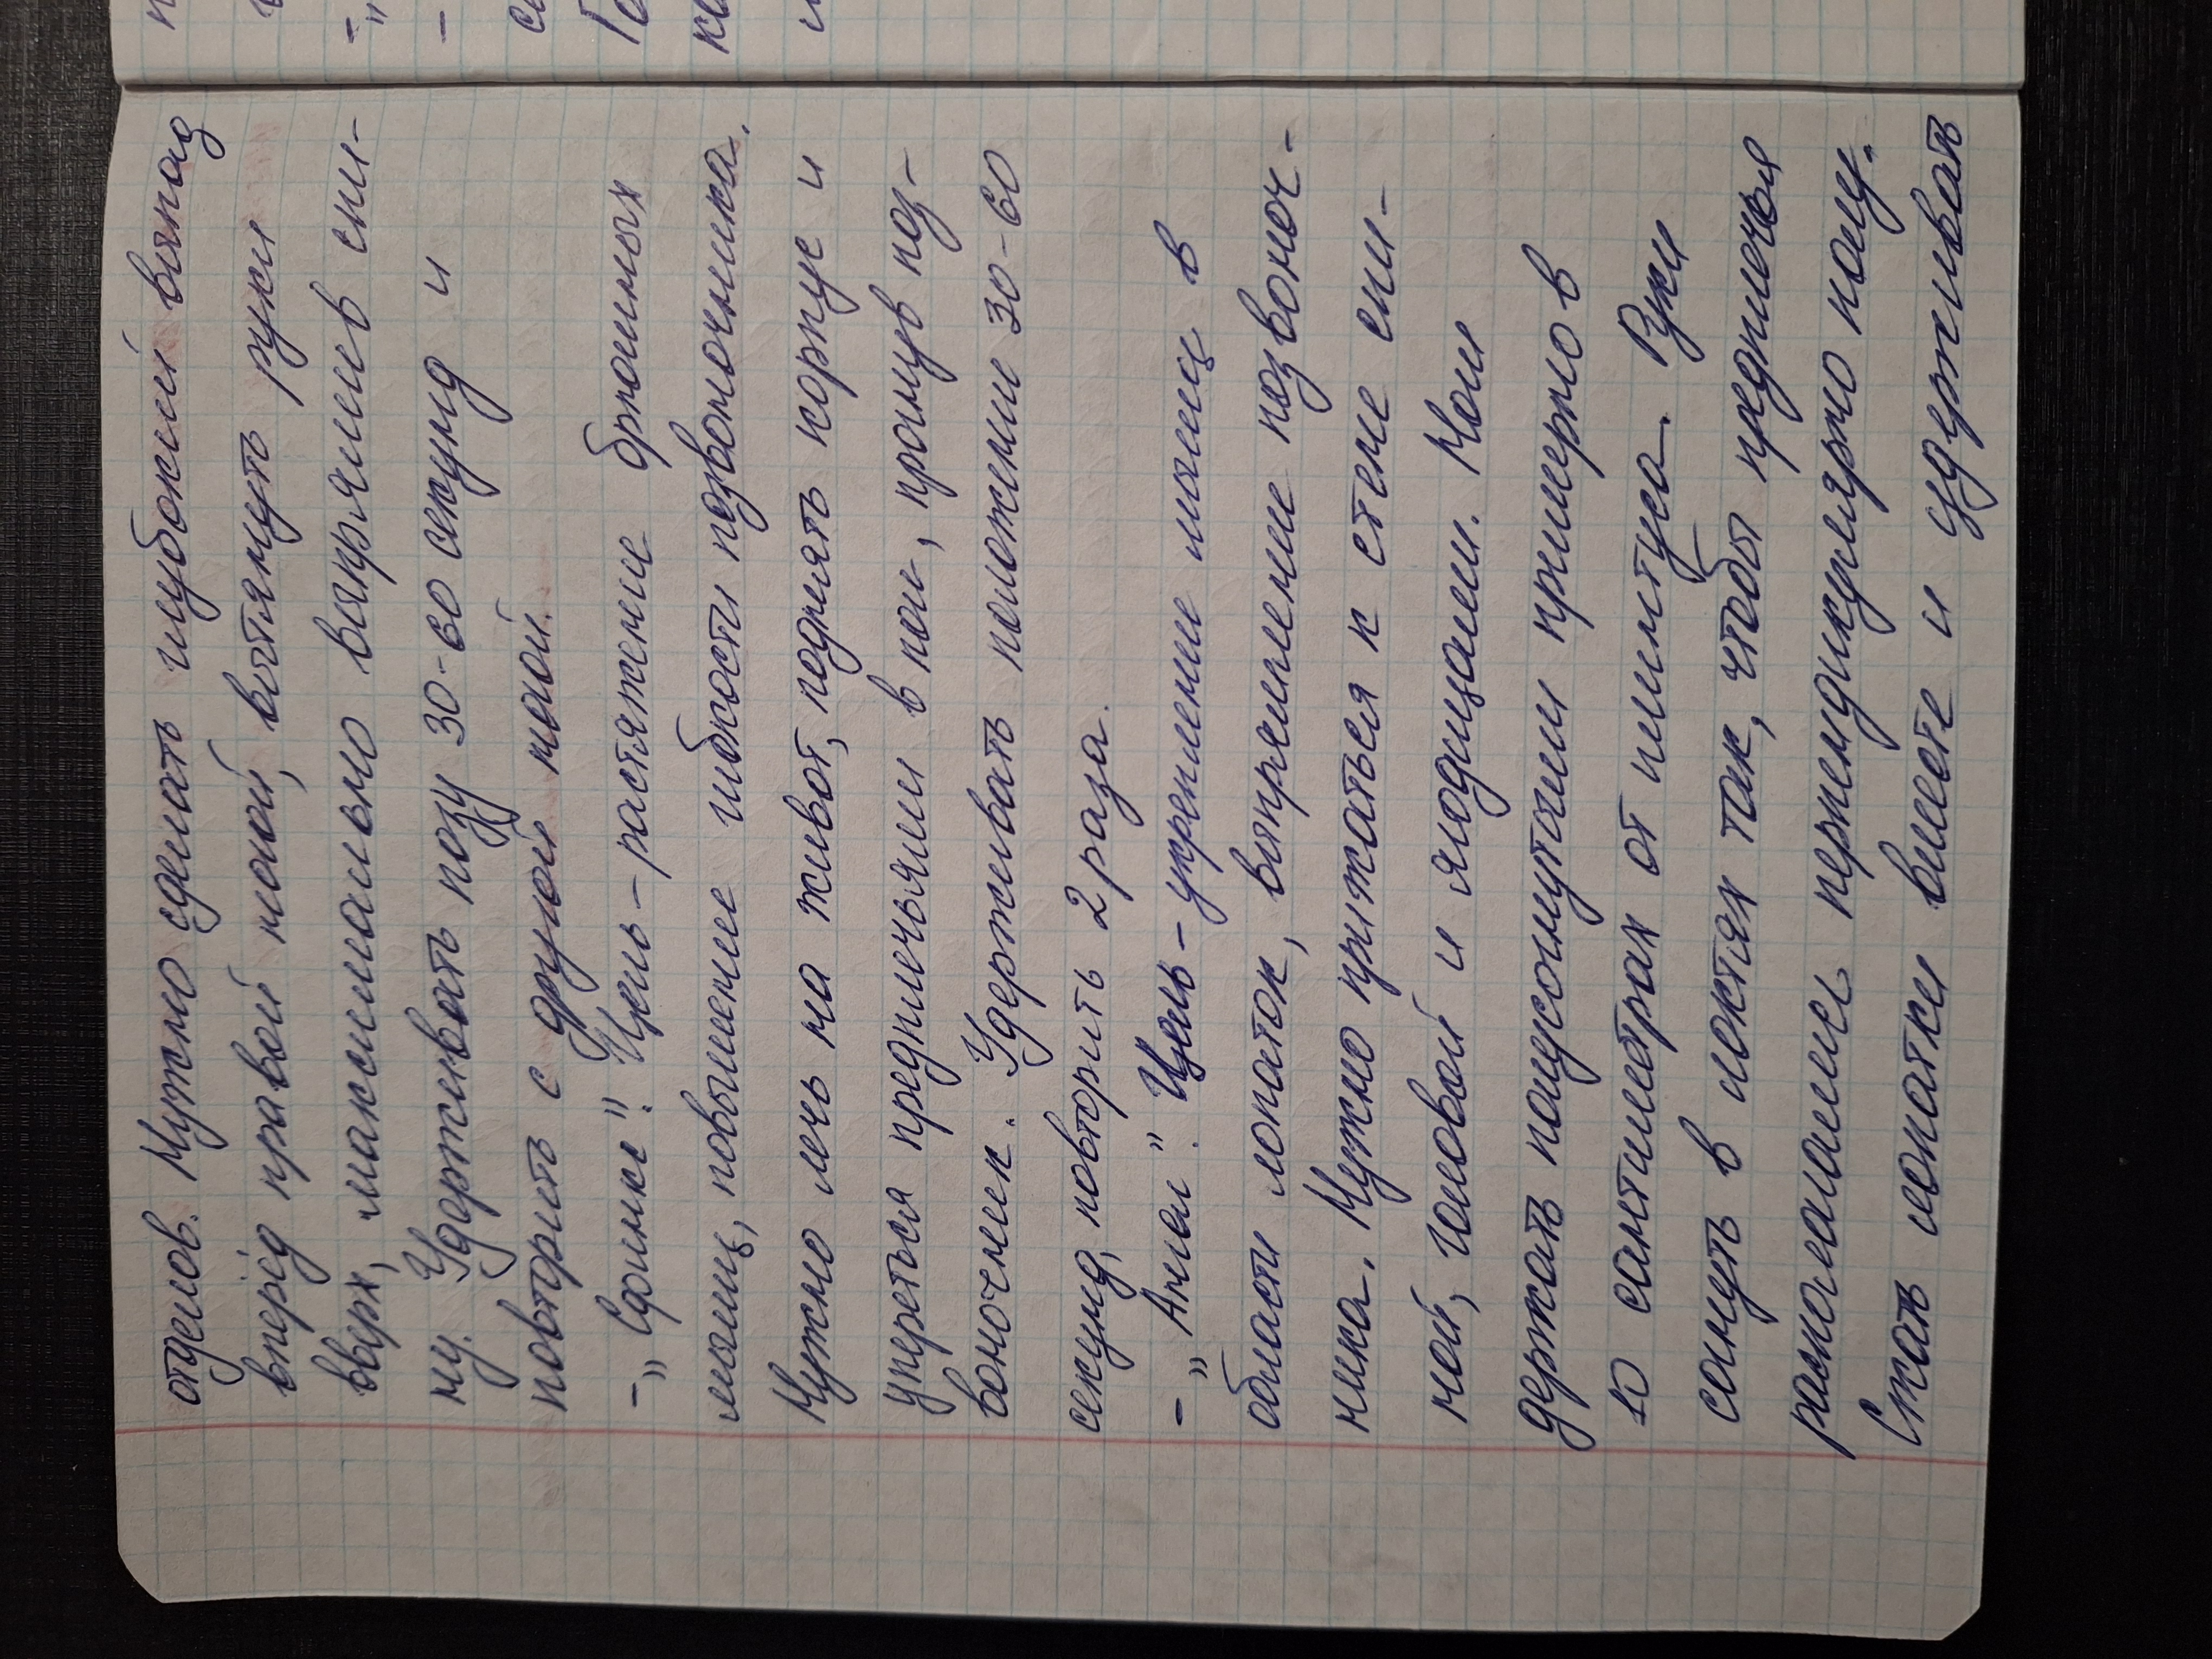 отделов. Нужно сделать глубокий выпад
вперёд правой ногой, вытянуть руки
вверх, максимально выпрямив спи-
ну. Удерживать позу 30-60 секунд и
повторить с другой ногой.
- „Сфинкс". Цель - растяжение брюшных
мышц, повышение гибкости позвоночника.
Нужно лечь на живот, поднять корпус и
упереться предплечьями в пол, прогнув поз-
воночник. Удерживать положение 30-60
секунд, повторить 2 раза.
- „Ангел". Цель - укрепление мышц в
области лопаток, выпрямление позвоноч-
ника. Нужно прижаться к стене спи-
ной, головой и ягодицами. Ноги
держать полусогнутыми примерно в
10 сантиметрах от плинтуса. Руки
согнуть в локтях так, чтобы предплечья
располагались перпендикулярно полу.
Сжать лопатки вместе и удерживать